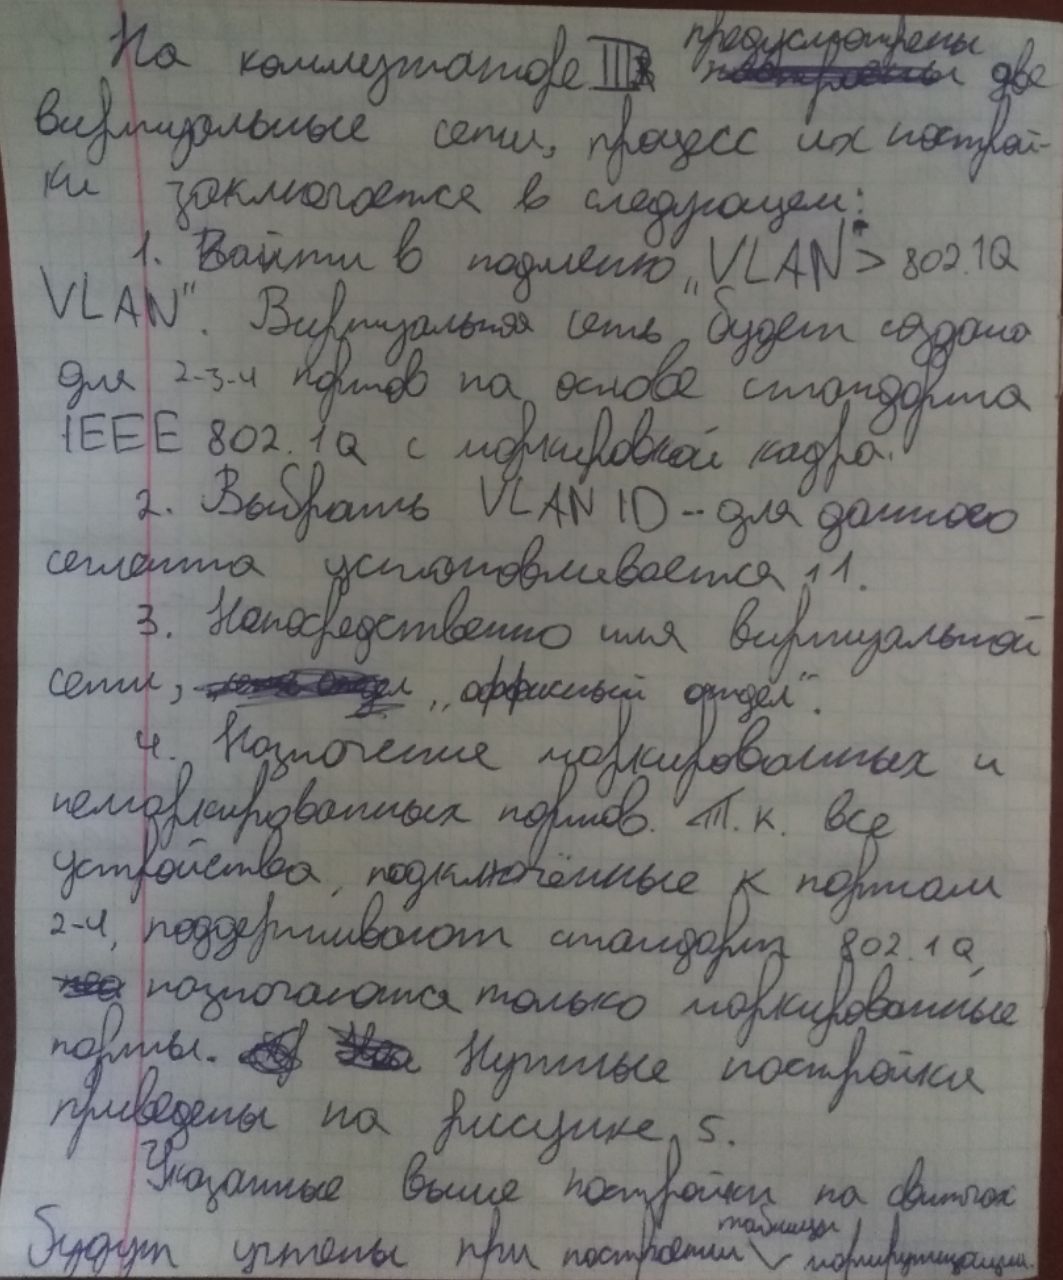 На коммутаторе III предусмотрены две
виртуальные сети, процесс их настрой-
ки заключается в следующем:
1. Зайти в подменю „VLAN > 802.1Q
VLAN". Виртуальная сеть будет создана
для 2-3-4 портов на основе стандарта
IEEE 802.1Q с маркировкой кадра.
2. Выбрать VLAN ID - для данного
сегмента устанавливается 11.
3. Непосредственно имя виртуальной
сети, „оффисный отдел".
4. Назначение маркированных и
немаркированных портов. Т.к. все
устройства, подключённые к портам
2-4, поддерживают стандарт 802.1Q,
назначаются только маркированные
порты. Нужные настройки
приведены на рисунке 5.
Указанные выше настройки на свитчах
будут учтены при построении таблицы маршрутизации.